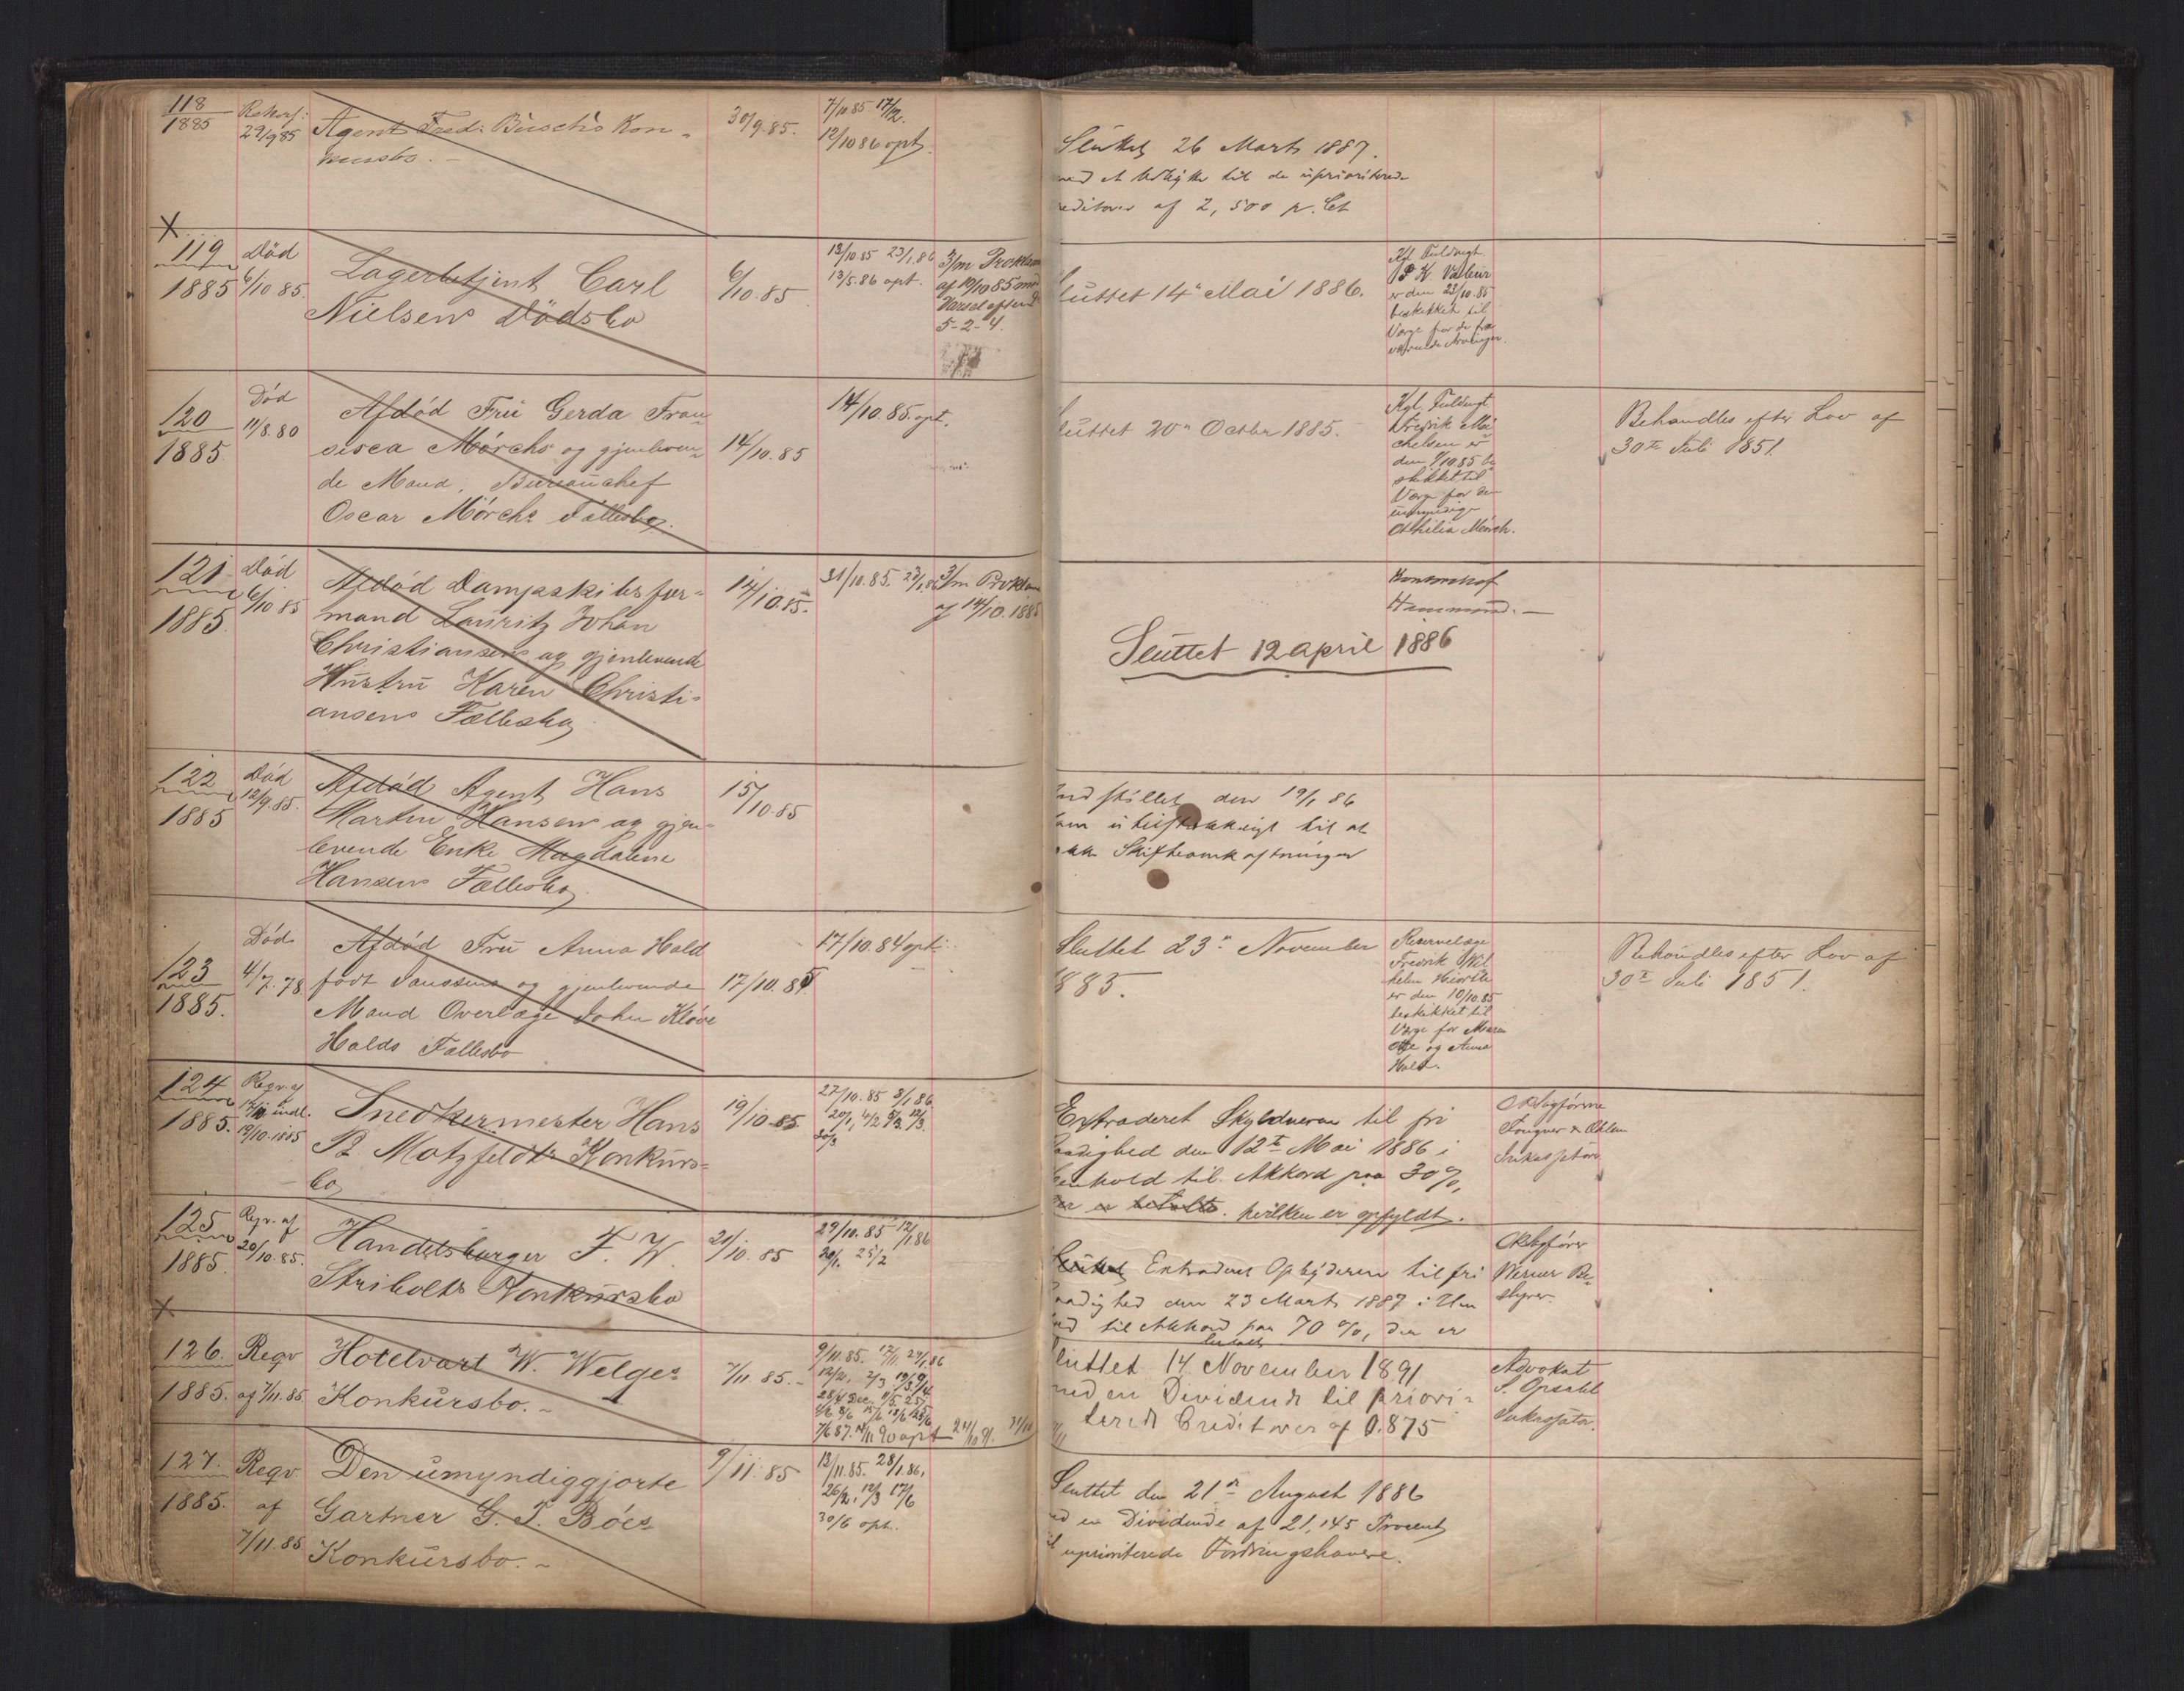 118
1885
29/9 85
Agent Fred: Büsch's Kon-
kursbo. -
30/9. 85.
7/10 85 17/12.
12/10 86 opt.
Sluttet 26 Marts 1887.
med et til de uprioriterede
Creditorer af 2,500 p. Ct
119
1885
Död
6/10 85.
Lagerbetjent Carl
Nielsens Dödsbo
6/10. 85
13/10 85 23/1.86
13/5.86 opt.
3/m Proklama
af 10/10 85 med
Varsel efter L
5-2-4.
Sluttet 14de Mai 1886.
Kgl. Fuldmgt.
K. Valeur
er den 23/10.85
beskikket til
Værge for de fra-
værende Arvinger.
120
1885
Död
11/8.80
Afdöd Fru Gerda Fran-
sisca Mörchs og gjenleven-
de Mand, Bureauchef
Oscar Mörchs Fællesbo.
14/10. 85
14/10. 85. opt.
Sluttet 20de Octbr 1885.
Kgl. Fuldmgt
Fredrik Mi-
chelsen er
den 9/10 85 be-
skikket til
Værge for den
umyndige
Othilia Mörch.
Behandles efter Lov af
30te Juli 1851.
121
1885.
Död
6/10 85
Afdöd Dampskibsfor-
mand Lauritz Johan
Christiansens og gjenlevende
Hustru Karen Christi-
ansens Fællesbo
14/10.85.
31/10. 85. 23/1.86
3/m Proklama
af 14/10. 1885
Sluttet 12 april 1886
122
1885
Död
12/9. 85.
Afdöd Agent Hans
Martin Hansens og gjen-
levende Enke Magdalene
Hansens Fællesbo
15/10. 85
Indstillet den 19/1 86
som utilstrækkeligt til at
dække Skifteomkostninger
123
1885.
Död
4/7. 78
Afdöd Fru Anna Hald
födt Janssens og gjenlevende
Mand Overlæge John Klöve
Halds Fællesbo
17/10. 85
17/10. 84 opt.
Sluttet 23de November
1885.
Reservelæge
Fredrik Wil-
helm
er den 10/10.85
beskikket til
Værge for Maren
og Anna
Hald.
Behandles efter Lov af
30te Juli 1851.
124
1885.
Reqv. af
indl.
19/10. 1885
Snedkermester Hans
P. Motzfeldts Konkurs-
bo
19/10. 85
27/10. 85 8/1 86
20/1, 4/2
Extraderet Skyldneren til fri
Raadighed den 12te Mai 1886 i
Henhold til Akkord paa 30%,
der er betalte. hvilken er opfyldt.
Sagförerne
Inkassator
125
1885
Reqv. af
20/10. 85.
Handelsborger F. W.
Stribolts Konkursbo
20/10. 85
29/10. 85 12/1 86
20/1. 25/2
Sluttet Extraderet Opbyderen til fri
Raadighed den 23 Marts 1887 i Hen-
hold til Akkord paa 70 %, der er
betalt
Sagförer
Werner Be-
styrer.
126.
1885.
Reqv
af 7/11. 85
Hotelvært W. Welges
Konkursbo. -
7/11. 85. -
9/11. 85.
Sluttet 14 November 1891
med en Dividende til priori-
terede Creditorer af 0.875
Advokat
S. Opsahl
Inkassator.
127.
1885.
Reqv.
af
7/11. 85
Den umyndiggjorte
Gartner G. T. Böes
Konkursbo. -
9/11. 85
13/11. 85. 28/1. 86,
26/2, 12/3 17/6
30/6 opt.
Sluttet den 21de August 1886
med en Dividende af 21,145 Procent
til uprioriterede Fordringshavere.